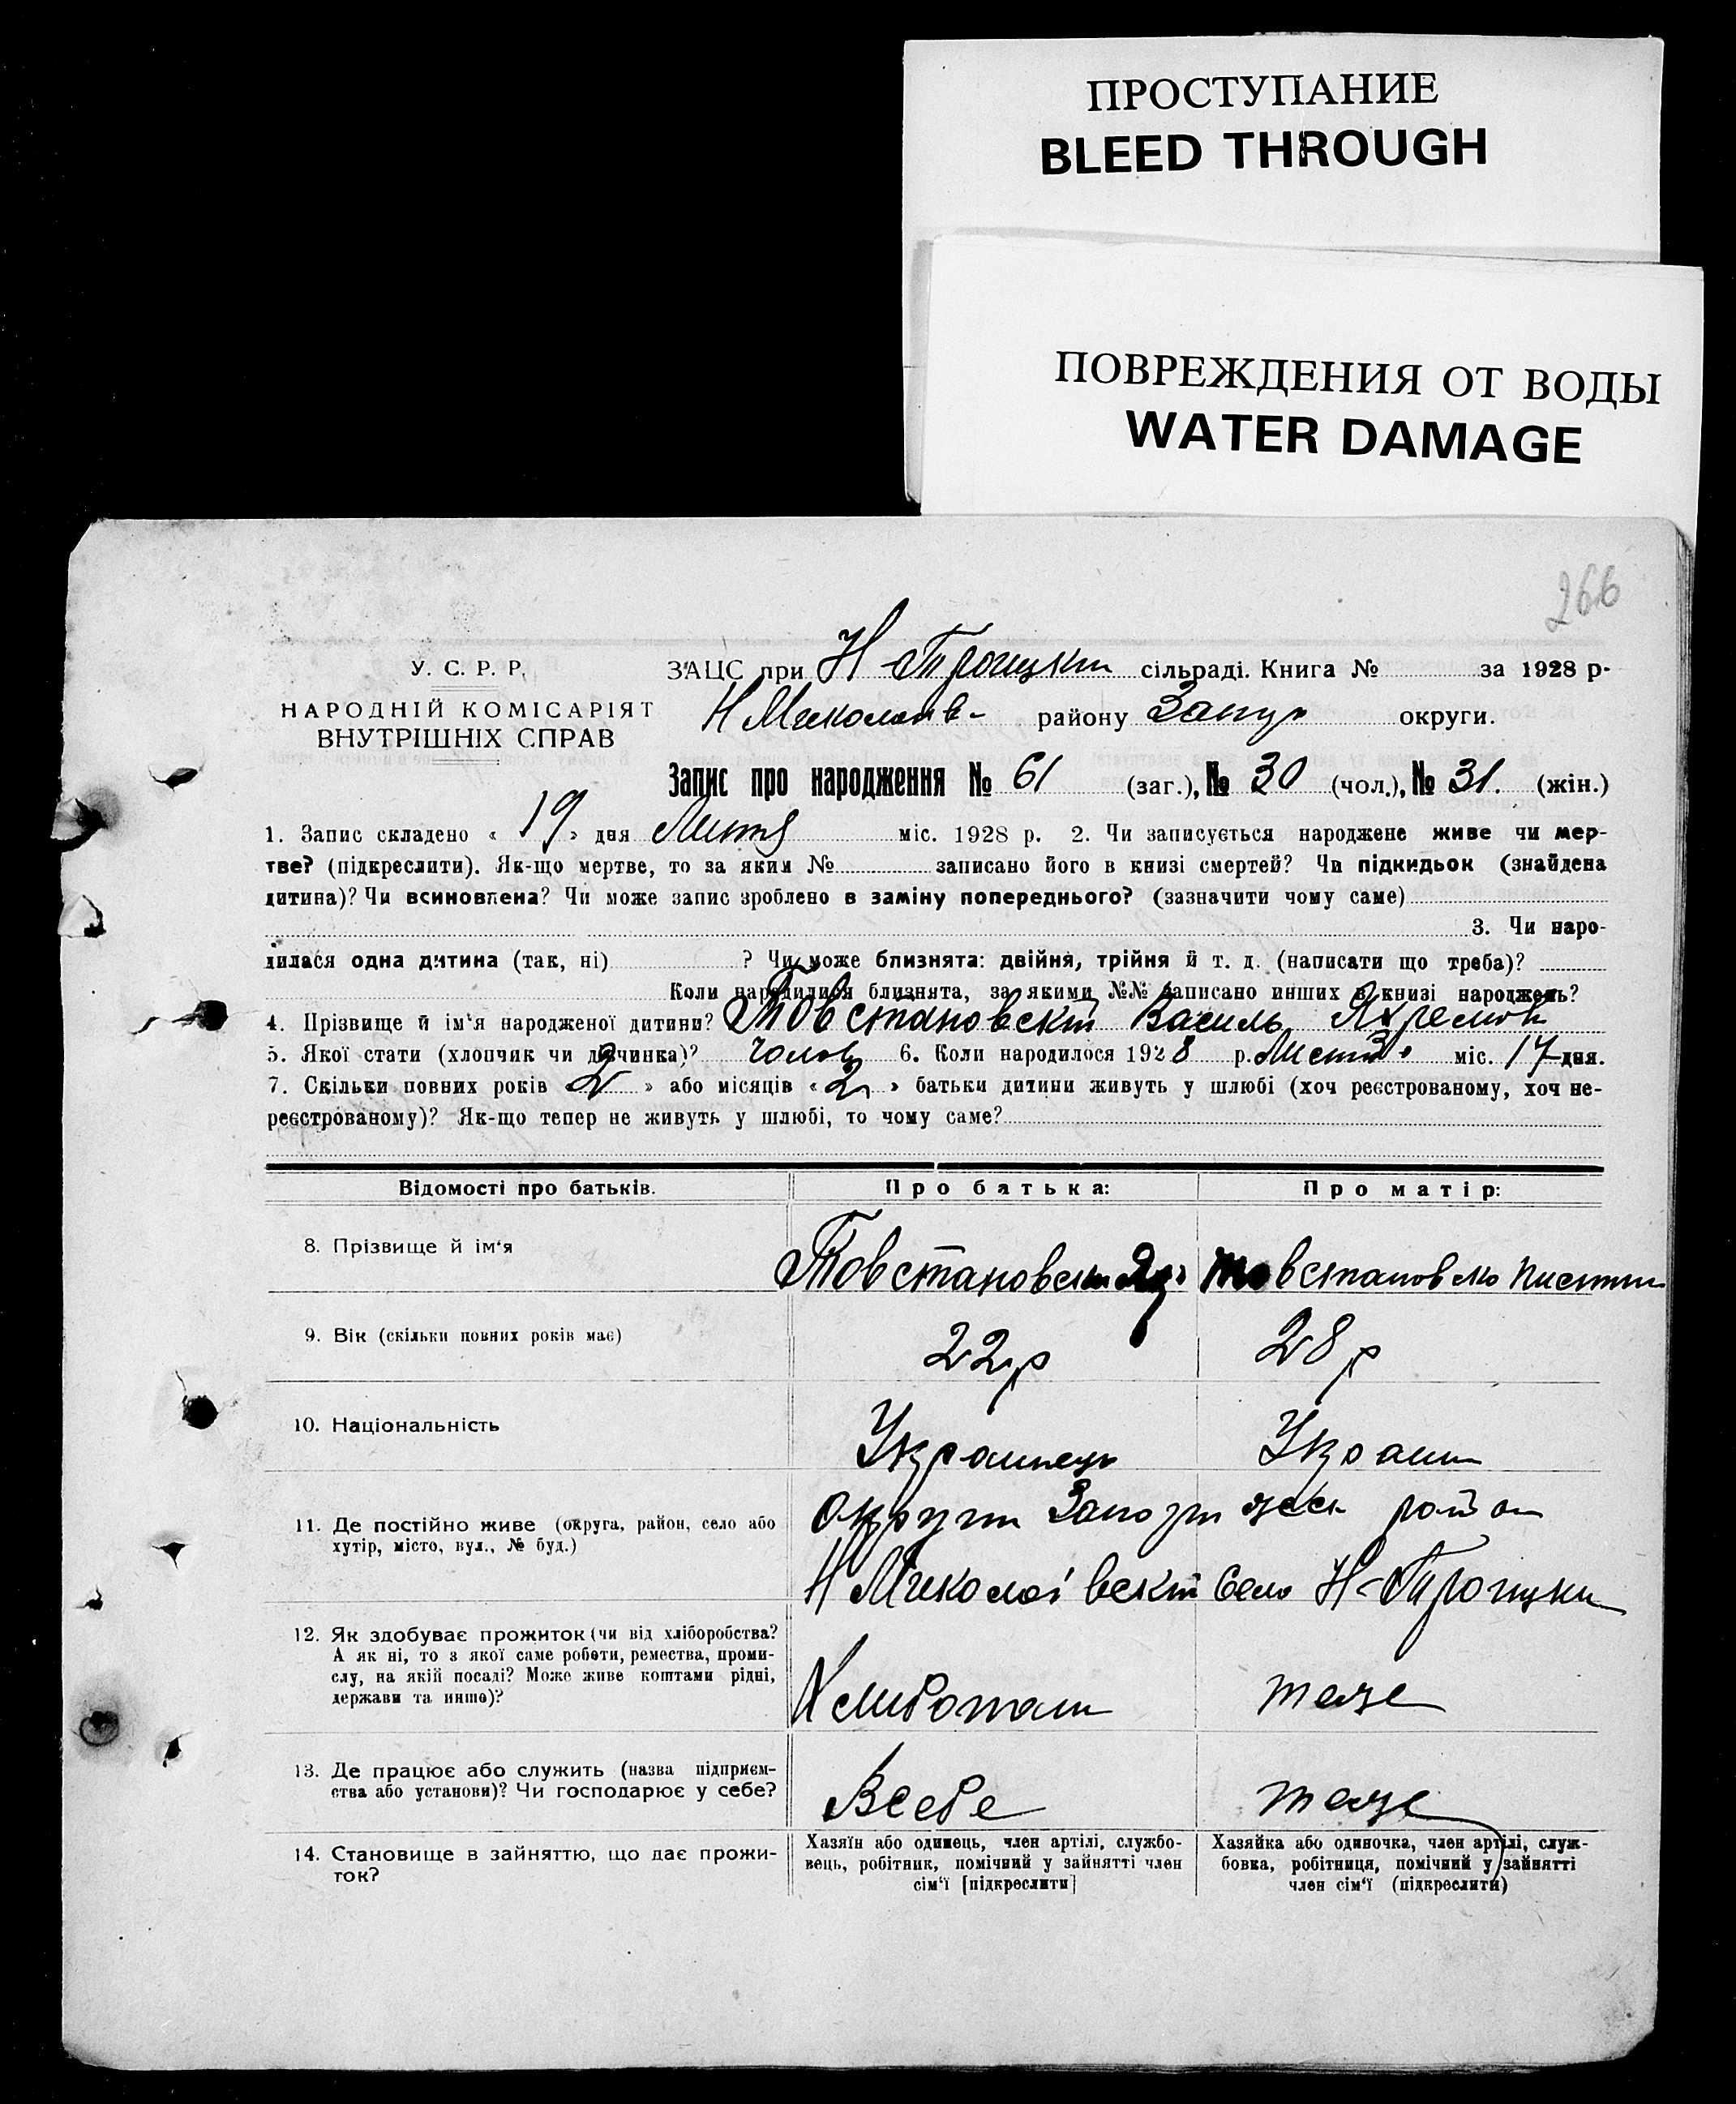 ПРОСТУПАНИЕ
BLEED THROUGH
ПОВРЕЖДЕНИЯ ОТ ВОДЫ
WATER DAMAGE
266
У. С. Р. Р.
НАРОДНІЙ КОМІСАРІЯТ
ВНУТРІШНІХ СПРАВ
ЗАЦС при Н-Троицки сільраді. Книга № за 1928 р.
району округи.
Запис про народження № 61 (заг.), № 30 (чол.), № 31. (жін.)
1. Запис складено « 19 » дня міс. 1928 р. 2. Чи записується народжене живе чи мер-
тве? (підкреслити). Як-що мертве, то за яким № записано його в книзі смертей? Чи підкидьок (знайдена
дитина)? Чи всиновлена? Чи може запис зроблено в заміну попереднього? (зазначити чому саме)
3. Чи наро-
дилася одна дитина (так, ні) ? Чи може близнята: двійня, трійня й т. д. (написати що треба)?
Коли народилися близнята, за якими №№ записано инших в книзі народжень?
4. Прізвище й ім'я народженої дитини? Товстановскій Василь
5. Якої статі (хлопчик чи дівчинка)? чолов 6. Коли народилося 1928 р. міс. 17 дня.
7. Скільки повних років « 2 » або місяців « 2 » батьки дитини живуть у шлюбі (хоч реєстрованому, хоч не-
реєстрованому)? Як-що тепер не живуть у шлюбі, то чому саме?
Відомості про батьків. Про батька: Про матір:
8. Прізвище й ім'я
9. Вік (скільки повних років має) 22 р 28 р
10. Національність Украинець Украин
11. Де постійно живе (округа, район, село або
хутір, місто, вул., № буд.)
село Н-Троицки
12. Як здобуває прожиток (чи від хліборобства?
А як ні, то з якої саме роботи, ремества, проми-
слу, на якій посаді? Може живе коштами рідні,
держави та инше)? тоже
13. Де працює або служить (назва підприєм-
ства або установи)? Чи господарює у себе? Всебе тоже
14. Становище в зайняттю, що дає прожи-
ток?
Хазяїн або одинець, член артілі, службо-
вець, робітник, помічний у зайнятті член
сім'ї [підкреслити]
Хазяйка або одиночка, член артілі, служ-
бовка, робітниця, помічний у зайнятті
член сім'ї (підкреслити)